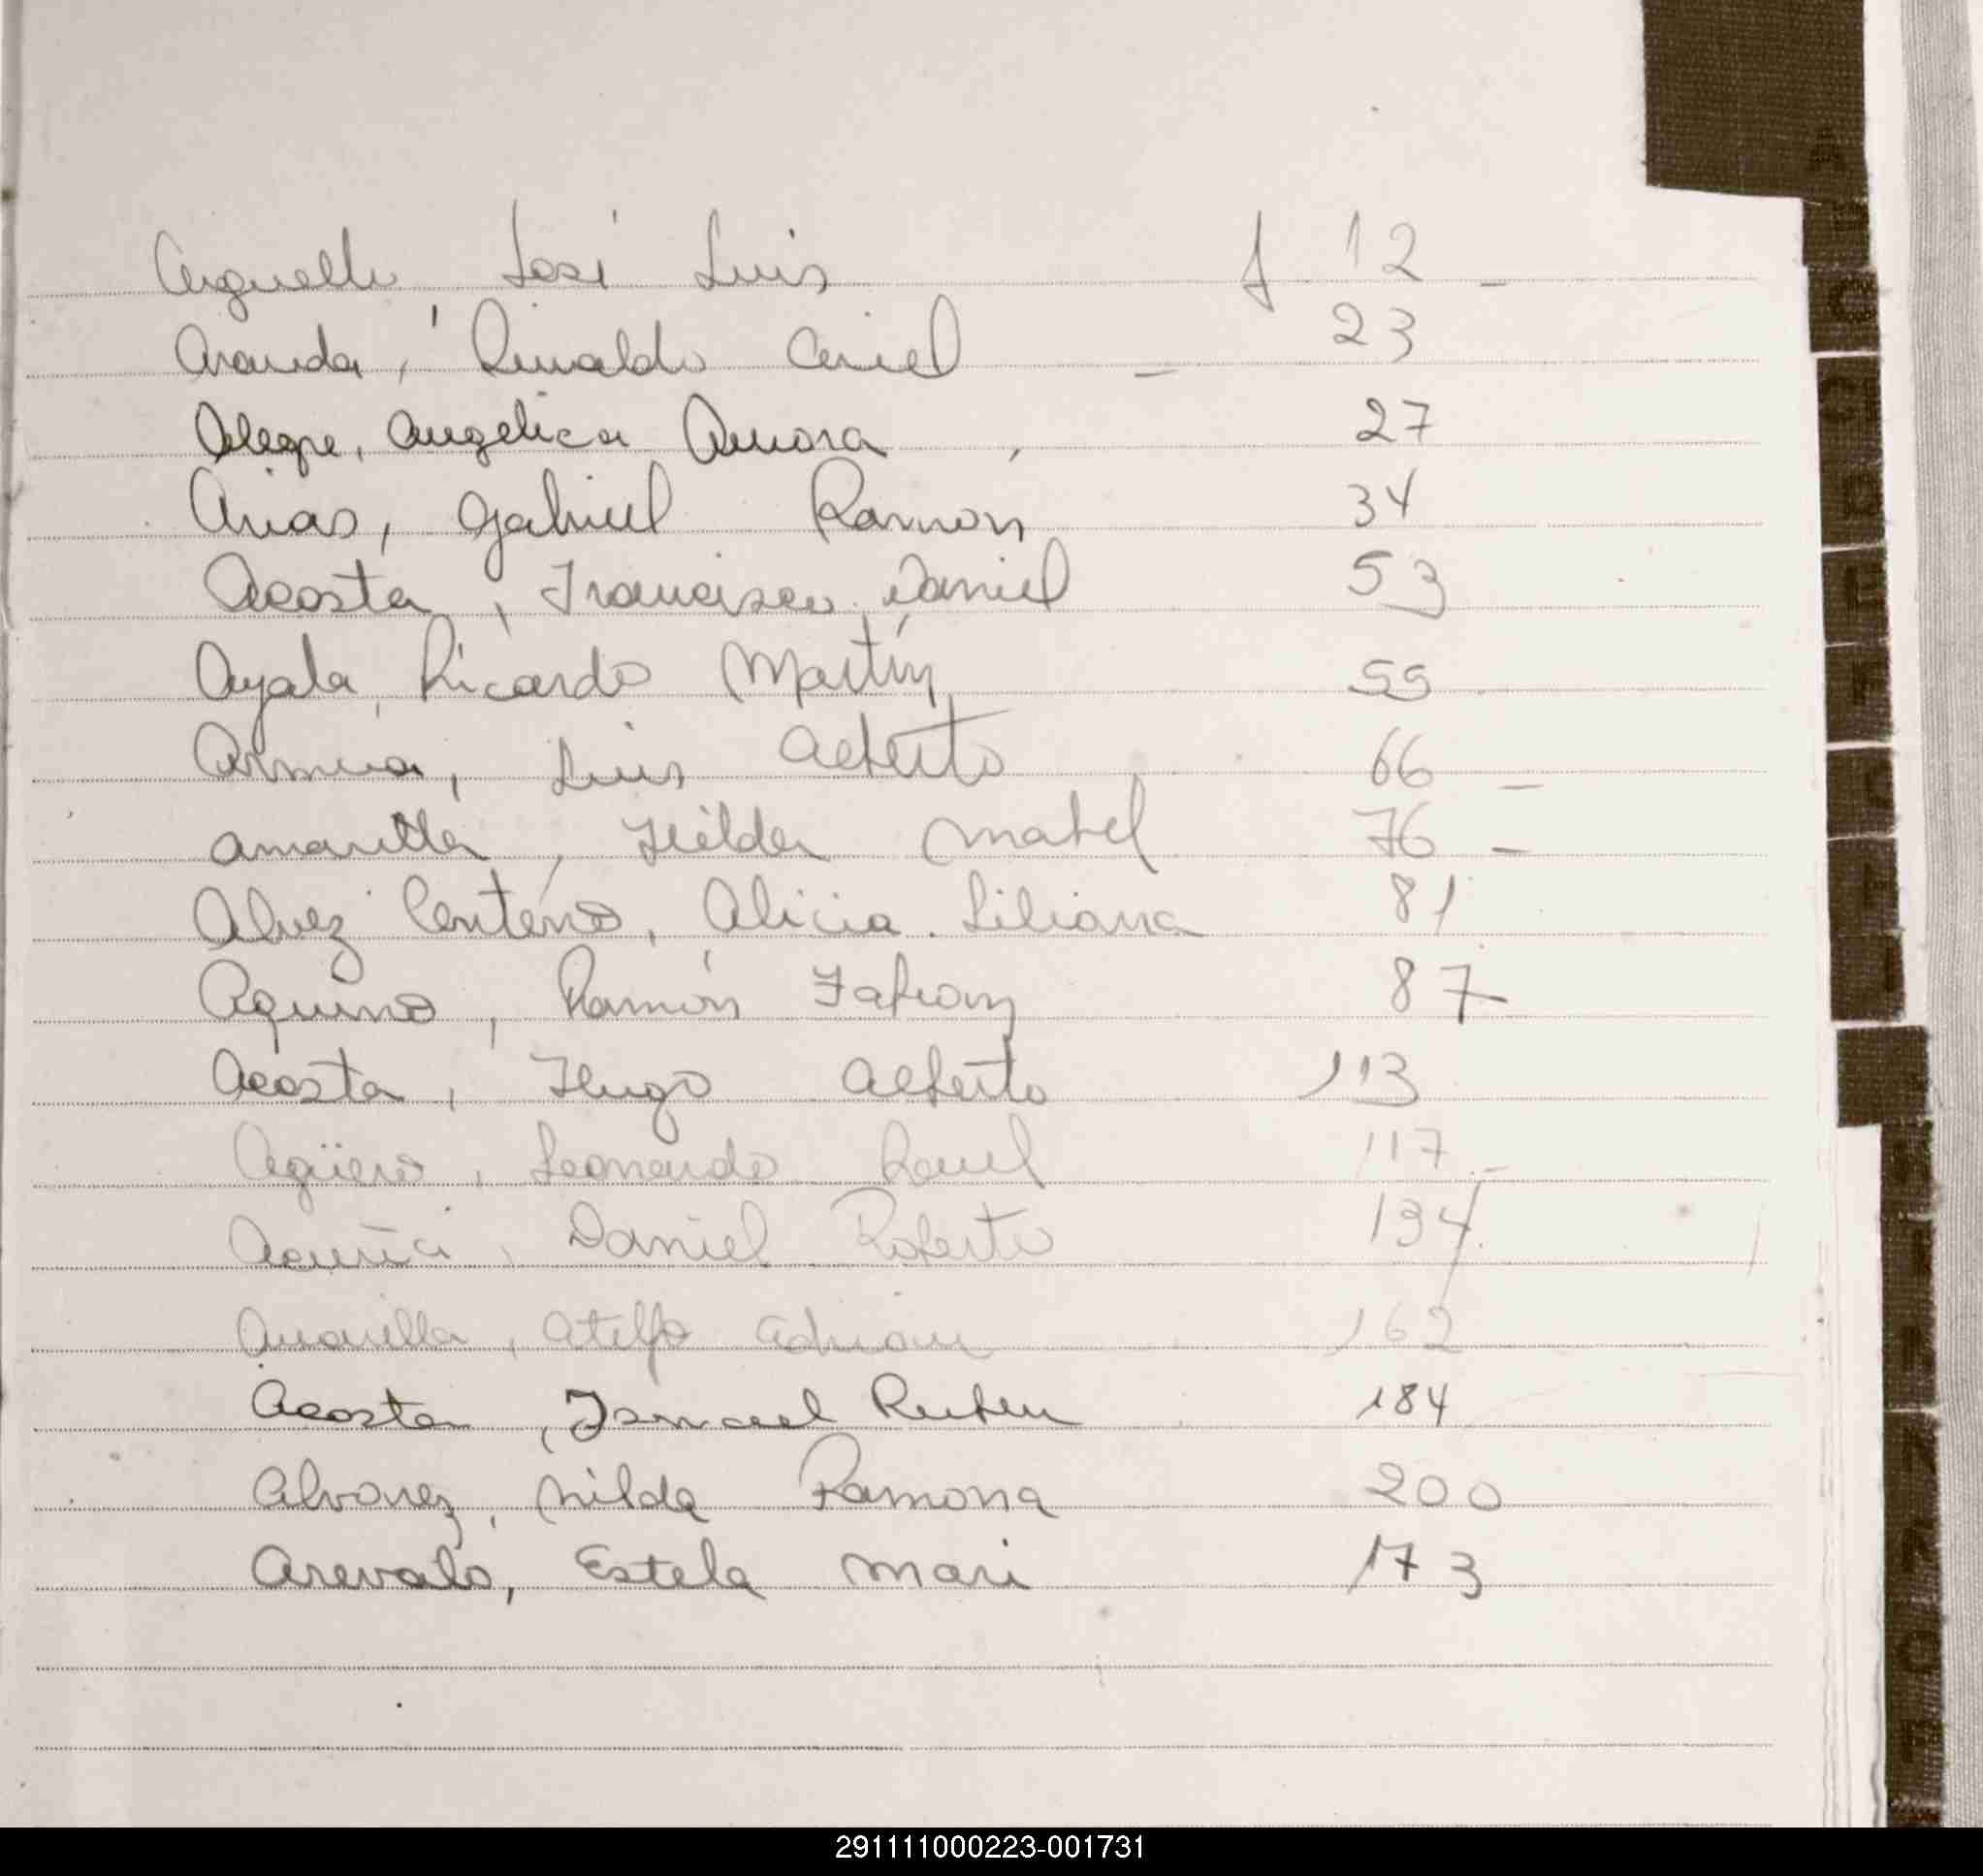 Arguello, José Luis f 12 -
Aranda, Rinaldo Ariel - 23
Alegre, Angelica Aurora, 27
Arias, Gabriel Ramon 34
Acosta, Francisco Daniel 53
Ayala, Ricardo Martín 55
Luis Alberto 66 -
Amarilla, Hilda Mabel 76 -
Alvez Centeno, Alicia Liliana 81
Aquino, Ramón Fabian 87 -
Acosta, Hugo Alberto 113
Agüero, Leonardo Raul 117 -
Acuña, Daniel Roberto 134
Amarilla, Adrian 162
Acosta, Ismael Ruben 184
Alvarez, Nilda Ramona 200
Arevalo, Estela Mari 173
A
B
C
CH
D
E
F
G
H
I
291111000223-001731